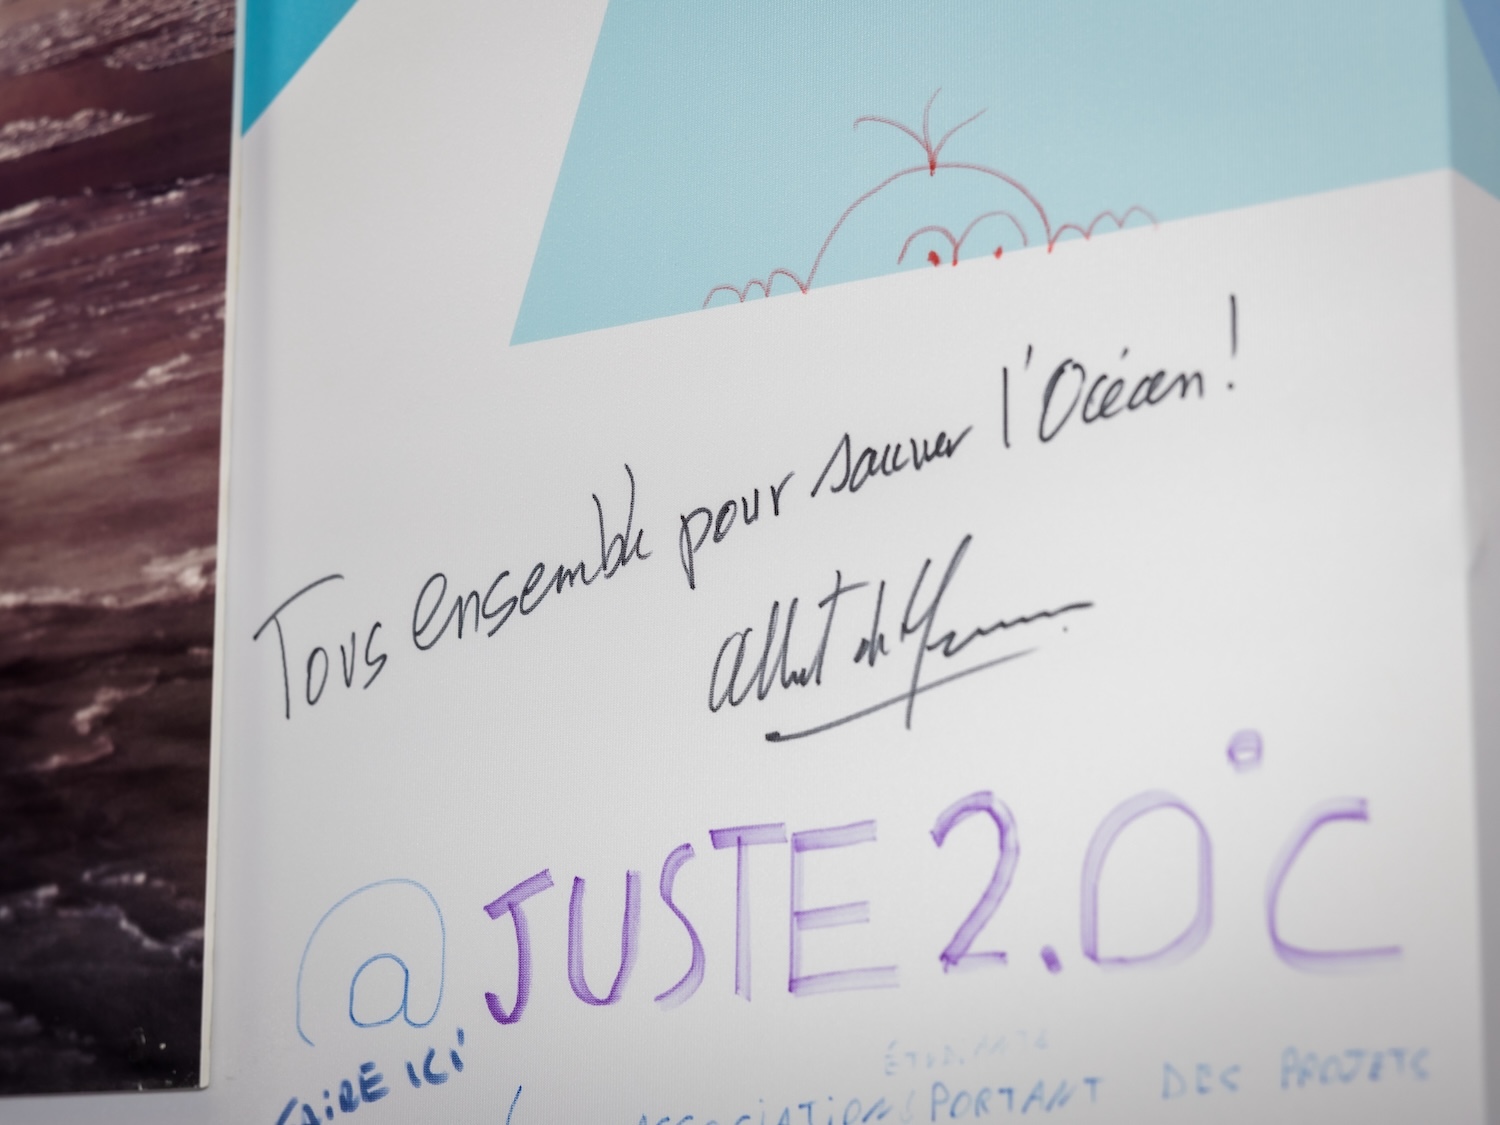 Tous ensemble pour sauver l'Océan!
Albert de
@JUSTE 2.0°C
FAIRE ICI
ÉTUDIANTE
ASSOCIATION PORTANT DES PROJETS